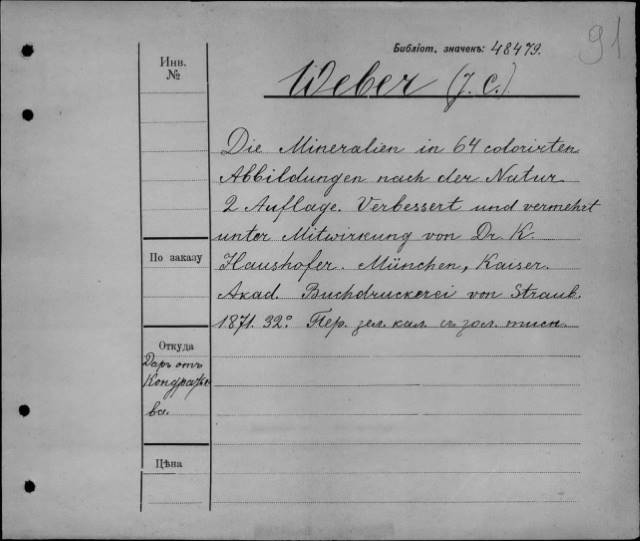 91
Библіот. значекъ: 48479.
Инв.
№
Weber (J. C.)
Die Mineralien in 64 colorirten
Abbildungen nach der Natur.
2 Auflage. Verbessert und vermehrt
unter Mitwirkung von Dr. K.
По заказу
Haushofer. München, Kaiser.
Akad. Buchdruckerei von Straub.
1871. 32° Пер. зел. кал. съ зол. тисн.
Откуда
Даръ отъ
Кондрать
ва.
Цѣна